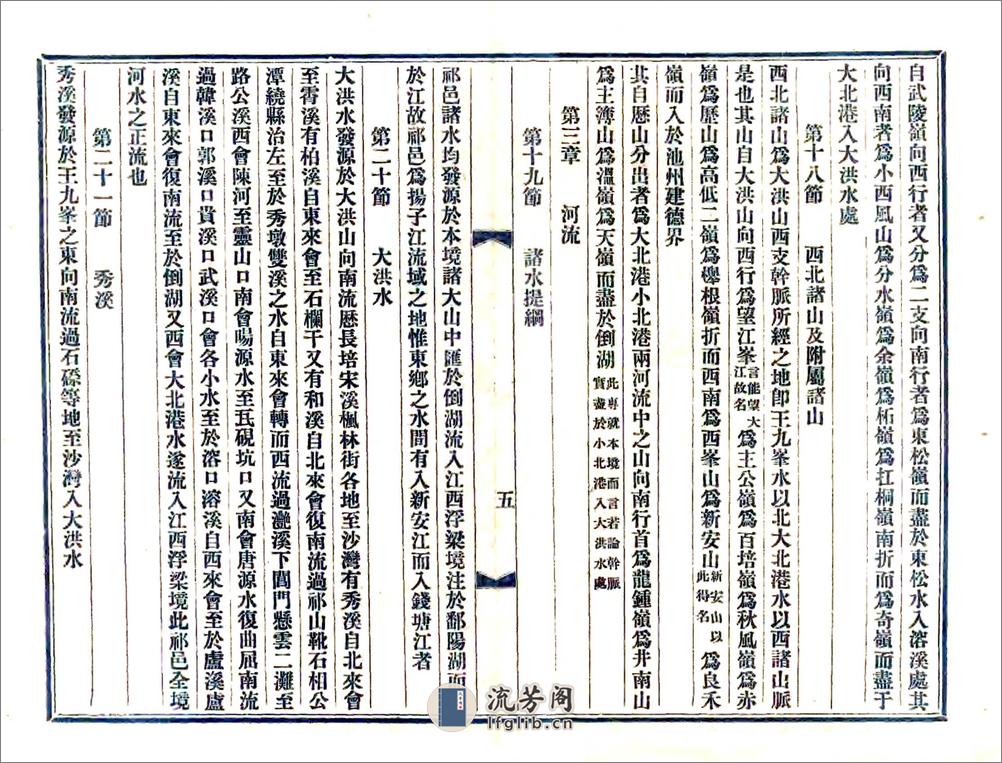 自武陵嶺向西行者又分爲二支向南行者爲東松嶺而盡於東松水入溶溪處其
向西南者爲小西風山爲分水嶺爲余嶺爲柘嶺爲扛桐嶺南折而爲奇嶺而盡于
大北港入大洪水處
第十八節　西北諸山及附屬諸山
西北諸山爲大洪山西支幹脈所經之地卽王九峯水以北大北港水以西諸山脈
是也其山自大洪山向西行爲望江峯言能望大江故名爲主公嶺爲百培嶺爲秋風嶺爲赤
嶺爲歷山爲高低二嶺爲櫸根嶺折而西南爲西峯山爲新安山新安山以此得名爲良禾
嶺而入於池州建德界
其自歷山分出者爲大北港小北港兩河流中之山向南行首爲龍鍾嶺爲井南山
爲主簿山爲溫嶺爲天嶺而盡於倒湖此專就本境而言若論幹脈實盡於小北港入大洪水處
第三章　河流
第十九節　諸水提綱
五
祁邑諸水均發源於本境諸大山中匯於倒湖流入江西浮梁境注於鄱陽湖而
於江故祁邑爲揚子江流域之地惟東鄉之水間有入新安江而入錢塘江者
第二十節　大洪水
大洪水發源於大洪山向南流歷長培宋溪楓林街各地至沙灣有秀溪自北來會
至霄溪有柏溪自東來會至石欄干又有和溪自北來會復南流過祁山靴石相公
潭繞縣治左至於秀墩雙溪之水自東來會轉而西流過灔溪下閶門懸雲二灘至
路公溪西會陳河至靈山口南會暘源水至瓦硯坑口又南會唐源水復曲屈南流
過韓溪口郭溪口貴溪口武溪口會各小水至於溶口溶溪自西來會至於盧溪盧
溪自東來會復南流至於倒湖又西會大北港水遂流入江西浮梁境此祁邑全境
河水之正流也
第二十一節　秀溪
秀溪發源於王九峯之東向南流過石磜等地至沙灣入大洪水
流芳阁
lfglib.cn